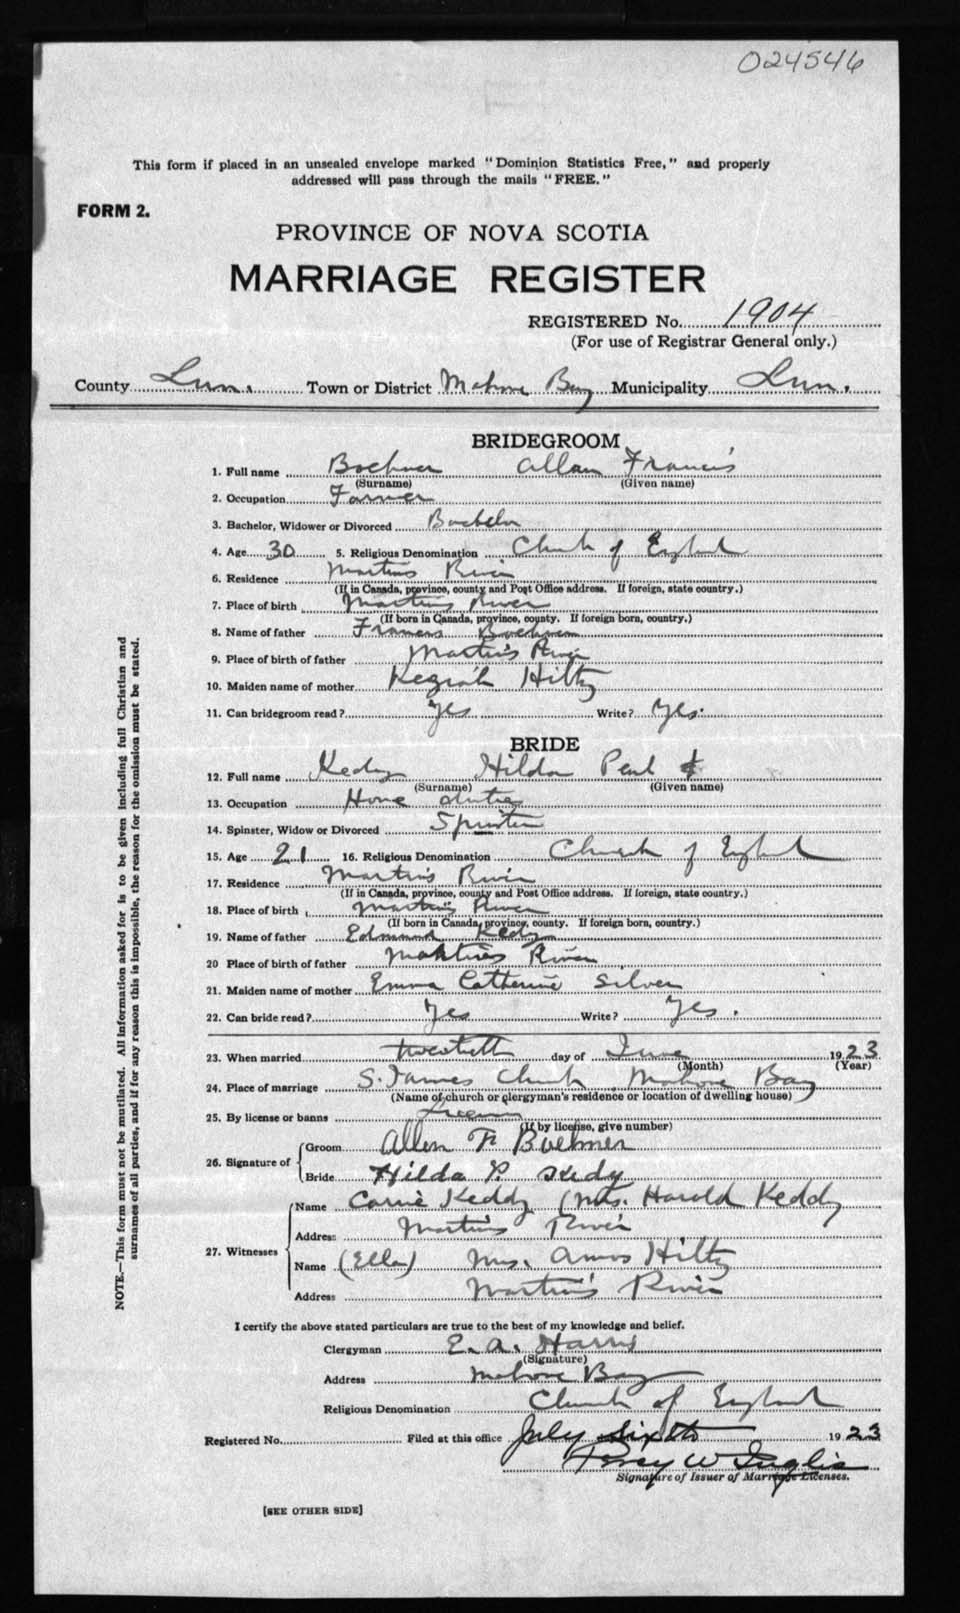 024546
This form if placed in an unsealed envelope marked "Dominion Statistics Free," and properly
addressed will pass through the mails "FREE."
FORM 2.
PROVINCE OF NOVA SCOTIA
MARRIAGE REGISTER
REGISTERED No. 1904
(For use of Registrar General only.)
County Lun. Town or District Mahone Bay Municipality Lun.
BRIDEGROOM
1. Full name Boehner Allan Francis
(Surname) (Given name)
2. Occupation Farmer
3. Bachelor, Widower or Divorced Bachelor
4. Age 30 5. Religious Denomination Church of England
6. Residence Martins River
(If in Canada, province, county and Post Office address. If foreign, state country.)
7. Place of birth Martins River
(If born in Canada, province, county. If foreign born, country.)
8. Name of father Francis Boehner
9. Place of birth of father Martin's River
10. Maiden name of mother Keziah Hiltz
11. Can bridegroom read? Yes Write? Yes.
BRIDE
12. Full name Kedy Hilda Pearl
(Surname) (Given name)
13. Occupation Home duties
14. Spinster, Widow or Divorced Spinster
15. Age 21 16. Religious Denomination Church of England
17. Residence Martin's River
(If in Canada, province, county and Post Office address. If foreign, state country.)
18. Place of birth Martin's River
(If born in Canada, province, county. If foreign born, country.)
19. Name of father Edmund Kedy
20 Place of birth of father Martins River
21. Maiden name of mother Emma Catherine Silver
22. Can bride read? Yes Write? Yes.
23. When married twentieth day of June 1923
(Month) (Year)
24. Place of marriage S. James Church Mahone Bay
(Name of church or clergyman's residence or location of dwelling house)
25. By license or banns License
(If by license, give number)
26. Signature of
Groom Allen F. Boehner
Bride Hilda P. Kedy
27. Witnesses
Name Carrie Keddy (Mrs. Harold Keddy
Address Martin's River
Name (Ella) Mrs. Amos Hiltz
Address Martin's River
I certify the above stated particulars are true to the best of my knowledge and belief.
Clergyman E. A. Harris
(Signature)
Address Mahone Bay
Religious Denomination Church of England
Registered No. Filed at this office July sixth 1923
Percy W Inglis
Signature of Issuer of Marriage Licenses.
[SEE OTHER SIDE]
NOTE.—This form must not be mutilated. All information asked for is to be given including full Christian and
surnames of all parties, and if for any reason this is impossible, the reason for the omission must be stated.